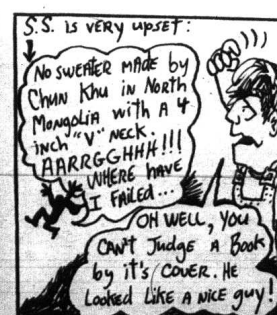 S.S. is very upset:
No sweater made by
Chun Khu in North
Mongolia with a 4
inch "V" neck.
AARRGGHHH!!!
Where have
I failed...
Oh well, you
can't judge a book
by it's cover. He
looked like a nice guy!